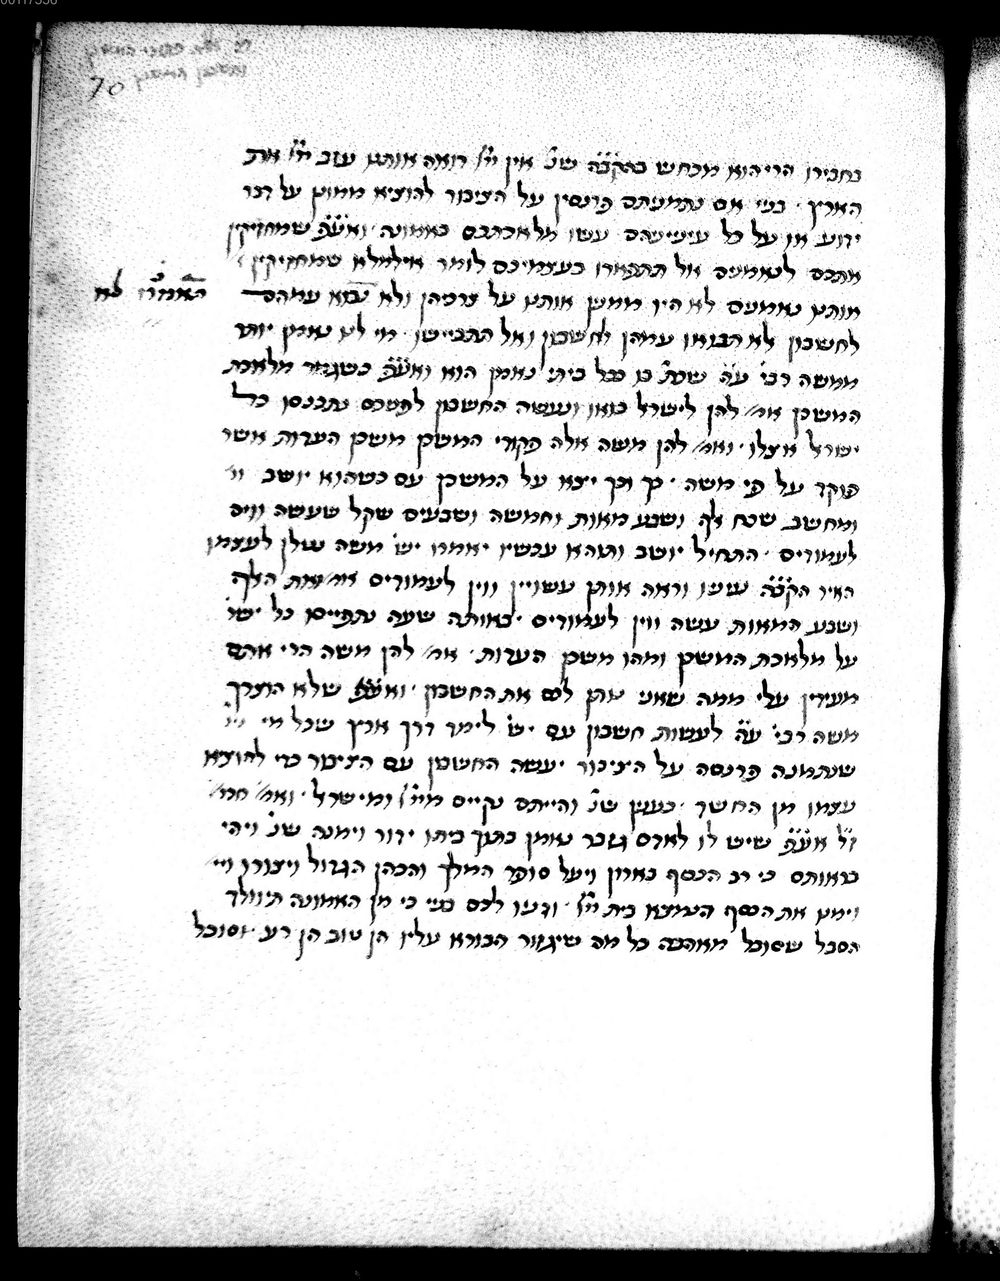 70
בחבירו הרי הוא מכחש בהקב״ה שנ׳ אין יי׳ רואה אותנו עזב יי׳ את
הארץ · בני אם נתמניתם פרנסין על הציבור להוציא ממונן על דבר
ידוע או על כל ענייניהם עשו מלאכתכם באמונה ואעפ״ שמחזיקין
אתכם לנאמנים אל תתפארו בעצמיכם לומר אילמלא שמחזיקין
אותנו נאמנים לא היו ממנין אותנו על צרכיהן ולא נבוא עמהם
לחשבון לא תבואו עמהן לחשבון ואל תתביישו · מי לנו נאמן יותר
ממשה רבי׳ ע״ה שכת׳ בו בכל ביתי נאמן הוא ואעפ״ כשגמר מלאכת
המשכן אמ׳ להן לישראל בואו ונעשה החשבון לפניכם נתכנסו כל
ישראל אצלו · ואמ׳ להן משה אלה פקודי המשכן משכן העדות אשר
פוקד על פי משה · כך וכך יצא על המשכן עם כשהוא יושב
ומחשב שכח אלף ושבע מאות וחמשה ושבעים שקל שעשה ווים
לעמודים · התחיל יושב ותוהא עכשיו יאמרו יש׳ משה נטלן לעצמו
האיר הקב״ה עיניו וראה אותן עשויין ווין לעמודים אמ׳ ואת האלף
ושבע המאות עשה ווין לעמודים · באותה שעה נתפייסו כל יש׳
על מלאכת המשכן ומהו משכן העדות · אמ׳ להן משה הרי אתם
מעידין עלי ממה שאני נותן לכם את החשבון · ואעפ״ שלא הוצרך
משה רבי׳ ע״ה לעשות חשבון עם יש׳ לימד דרך ארץ שכל מי
שנתמנה פרנסה על הציבור יעשה החשבון עם הציבור כדי להוציא
עצמו מן החשד · כענין שנ׳ והייתם נקיים מיי׳ ומישראל · ואמ׳
ז״ל אעפ״ שיש לו לאדם גזבר נאמן בתוך ביתו ידור וימנה שנ׳ ויהי
כראותם כי רב הכסף בארון ויעל סופר המלך והכהן הגדול ויצורו
וימנו את הכסף הנמצא בית יי׳ · ודעו לכם בני כי מן האמונה תיוולד
הסבל שסובל מאהבה כל מה שיגזור הבורא עליו הן טוב הן רע וסובל